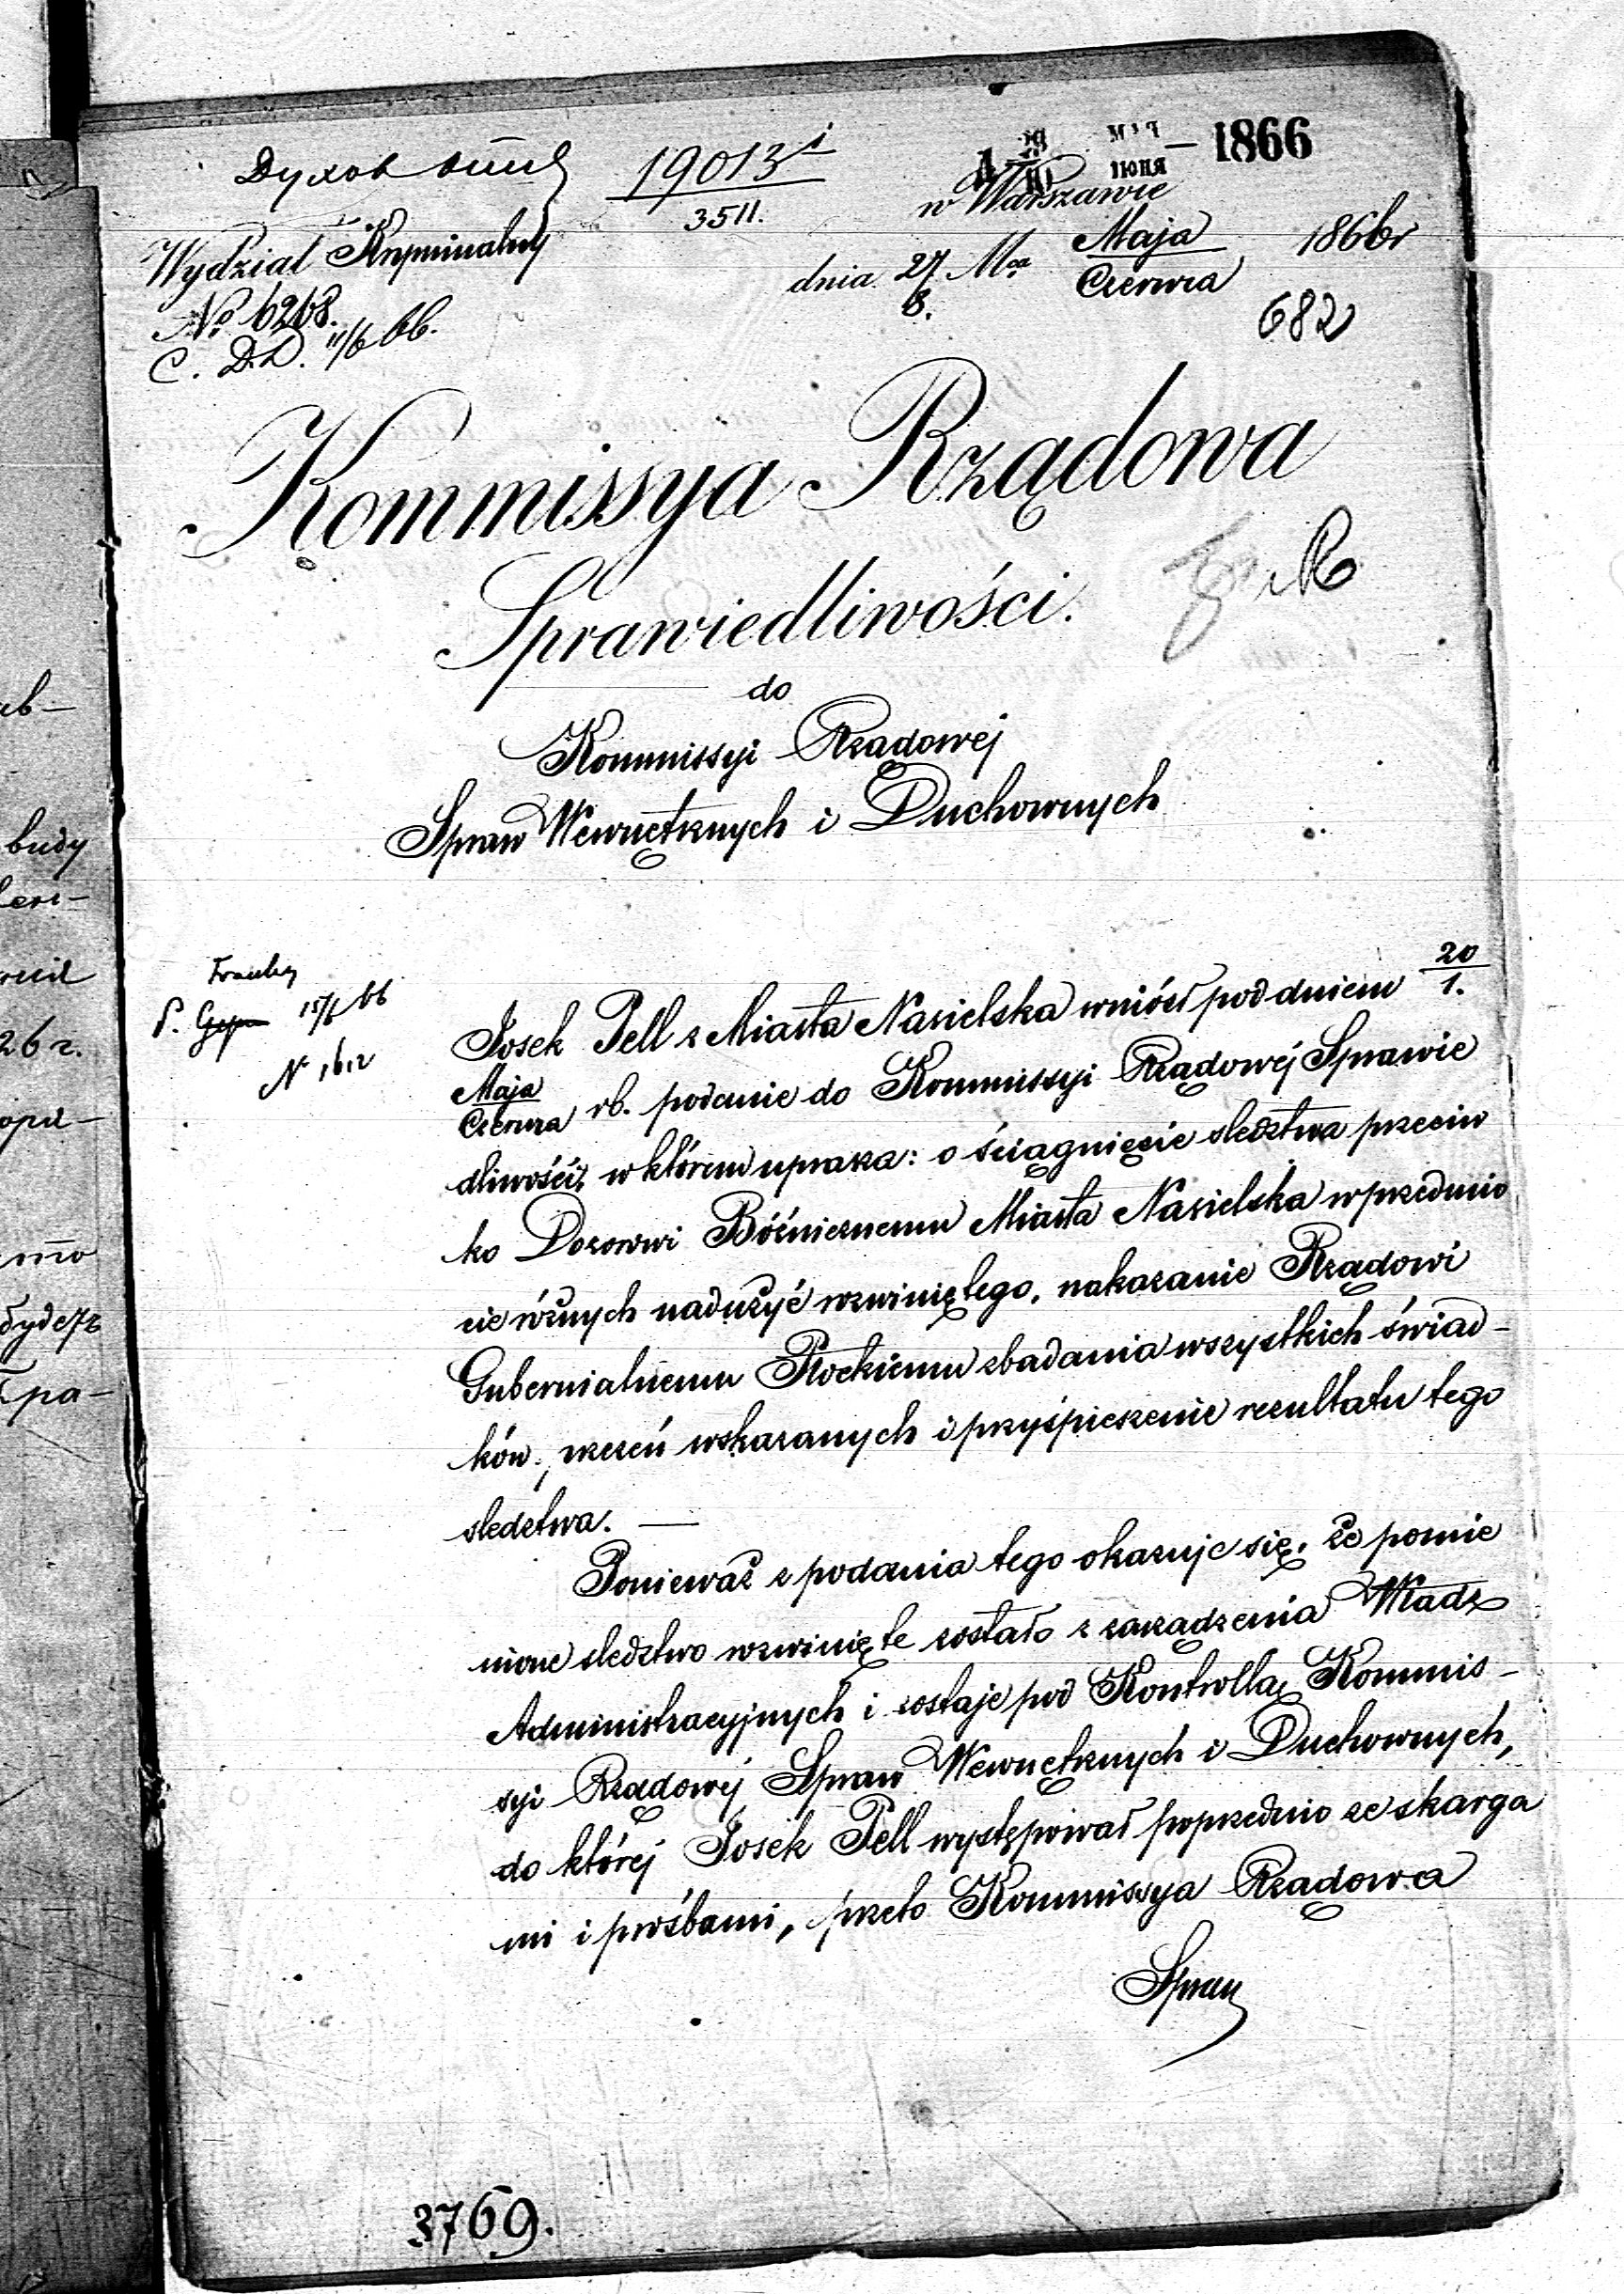 19013
3511.
29 МАЯ
10 ІЮНЯ — 1866
w Warszawie
Wydział Kryminalny
dnia 27/8. Maja/Czerwca 1866 r
No 6268.
C. D.D. 11/6 66.
682
Kommissya Rządowa
Sprawiedliwości.
do
Kommissyi Rządowéj
Spraw Wewnętrznych i Duchownych
P. 15/6 66
N
Josek Pell z Miasta Nasielska wniósł pod dniem 20/1.
Maja/Czerwca rb. podanie do Kommissyi Rządowéj Sprawie
dliwości, w którem uprasza: o ściągnięcie sledztwa przeciw
ko Dozorowi Bóźnicznemu Miasta Nasielska w przedmio
cie różnych nadużyć wywiniętego, nakazanie Rządowi
Gubernialnemu Płockiemu zbadania wszystkich świad-
ków, wskazanych i przyśpieszenie rezultatu tego
sledztwa. —
Ponieważ z podania tego okazuje się, że pomie
nione sledztwo wywinięte zostało z zarządzenia Władz
Administracyjnych i zostaje pod Kontrollą Kommis-
syi Rządowéj Spraw Wewnętrznych i Duchownych,
do któréj Josek Pell występował poprzednio ze skarga
mi i prośbami, przeto Kommissya Rządowa
Spraw
3769.
ab-
budy
26 г.
будетъ